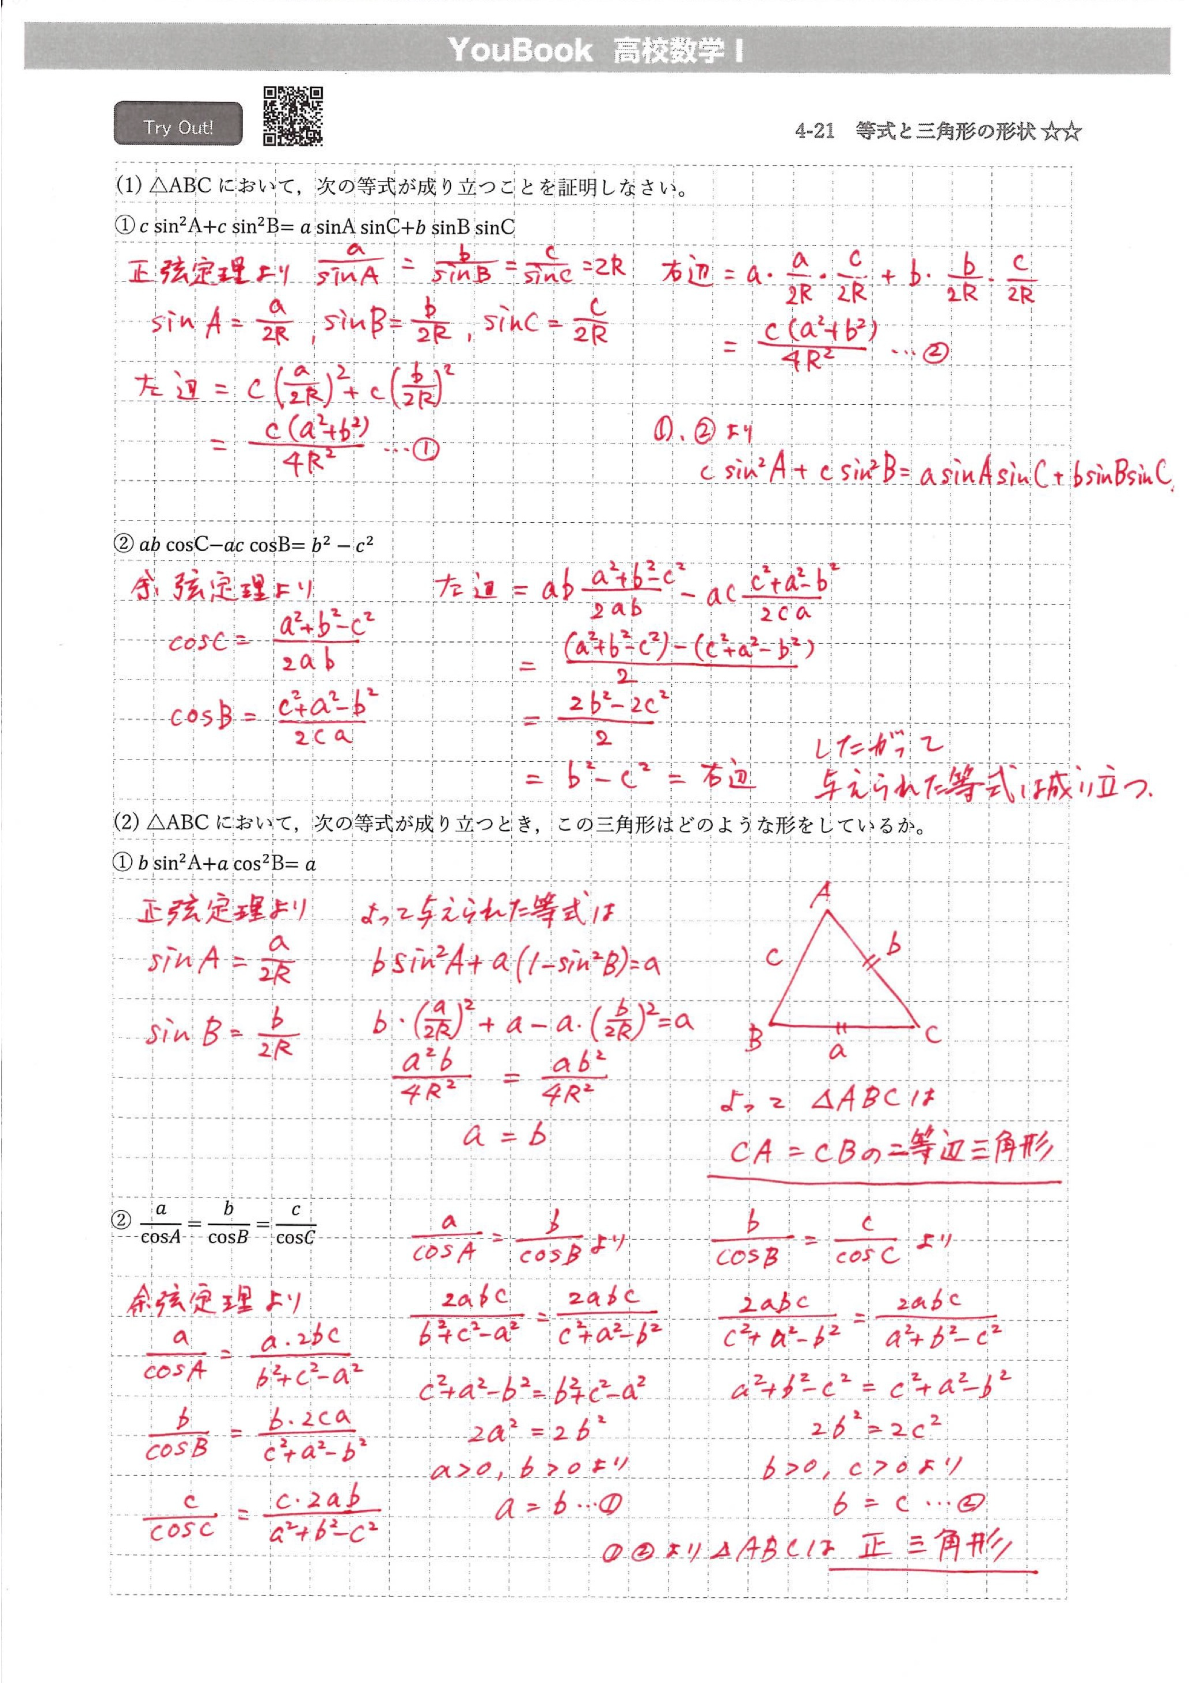 YouBook 高校数学 I
Try Out!
4-21 等式と三角形の形状 ☆☆
(1) △ABC において，次の等式が成り立つことを証明しなさい。
① c sin²A+c sin²B= a sinA sinC+b sinB sinC
正弦定理より a/sinA = b/sinB = c/sinC =2R
sinA = a/2R , sinB= b/2R , sinC = c/2R
左辺 = c(a/2R)²+ c(b/2R)²
= c(a²+b²)/4R² …①
右辺 = a・a/2R・c/2R + b・b/2R・c/2R
= c(a²+b²)/4R² …②
①、②より
c sin²A + c sin²B= a sinA sinC + b sinB sinC.
② ab cosC−ac cosB= b² − c²
余弦定理より
cosC= (a²+b²-c²)/2ab
cosB = (c²+a²-b²)/2ca
左辺 = ab (a²+b²-c²)/2ab - ac (c²+a²-b²)/2ca
= ((a²+b²-c²)-(c²+a²-b²))/2
= (2b²-2c²)/2
= b²-c² = 右辺
したがって
与えられた等式は成り立つ.
(2) △ABC において，次の等式が成り立つとき，この三角形はどのような形をしているか。
① b sin²A+a cos²B= a
正弦定理より
sinA = a/2R
sinB = b/2R
よって与えられた等式は
b sin²A + a(1-sin²B)=a
b・(a/2R)² + a - a・(b/2R)²=a
a²b/4R² = ab²/4R²
a = b
A
c
b
B
a
C
よって △ABCは
CA = CBの二等辺三角形
② a/cosA = b/cosB = c/cosC
余弦定理より
a/cosA = a・2bc/(b²+c²-a²)
b/cosB = b・2ca/(c²+a²-b²)
c/cosC = c・2ab/(a²+b²-c²)
a/cosA = b/cosB より
2abc/(b²+c²-a²) = 2abc/(c²+a²-b²)
c²+a²-b²= b²+c²-a²
2a² = 2b²
a>0, b>0より
a = b …①
b/cosB = c/cosC より
2abc/(c²+a²-b²) = 2abc/(a²+b²-c²)
a²+b²-c² = c²+a²-b²
2b² = 2c²
b>0, c>0より
b = c …②
①②より △ABCは 正三角形